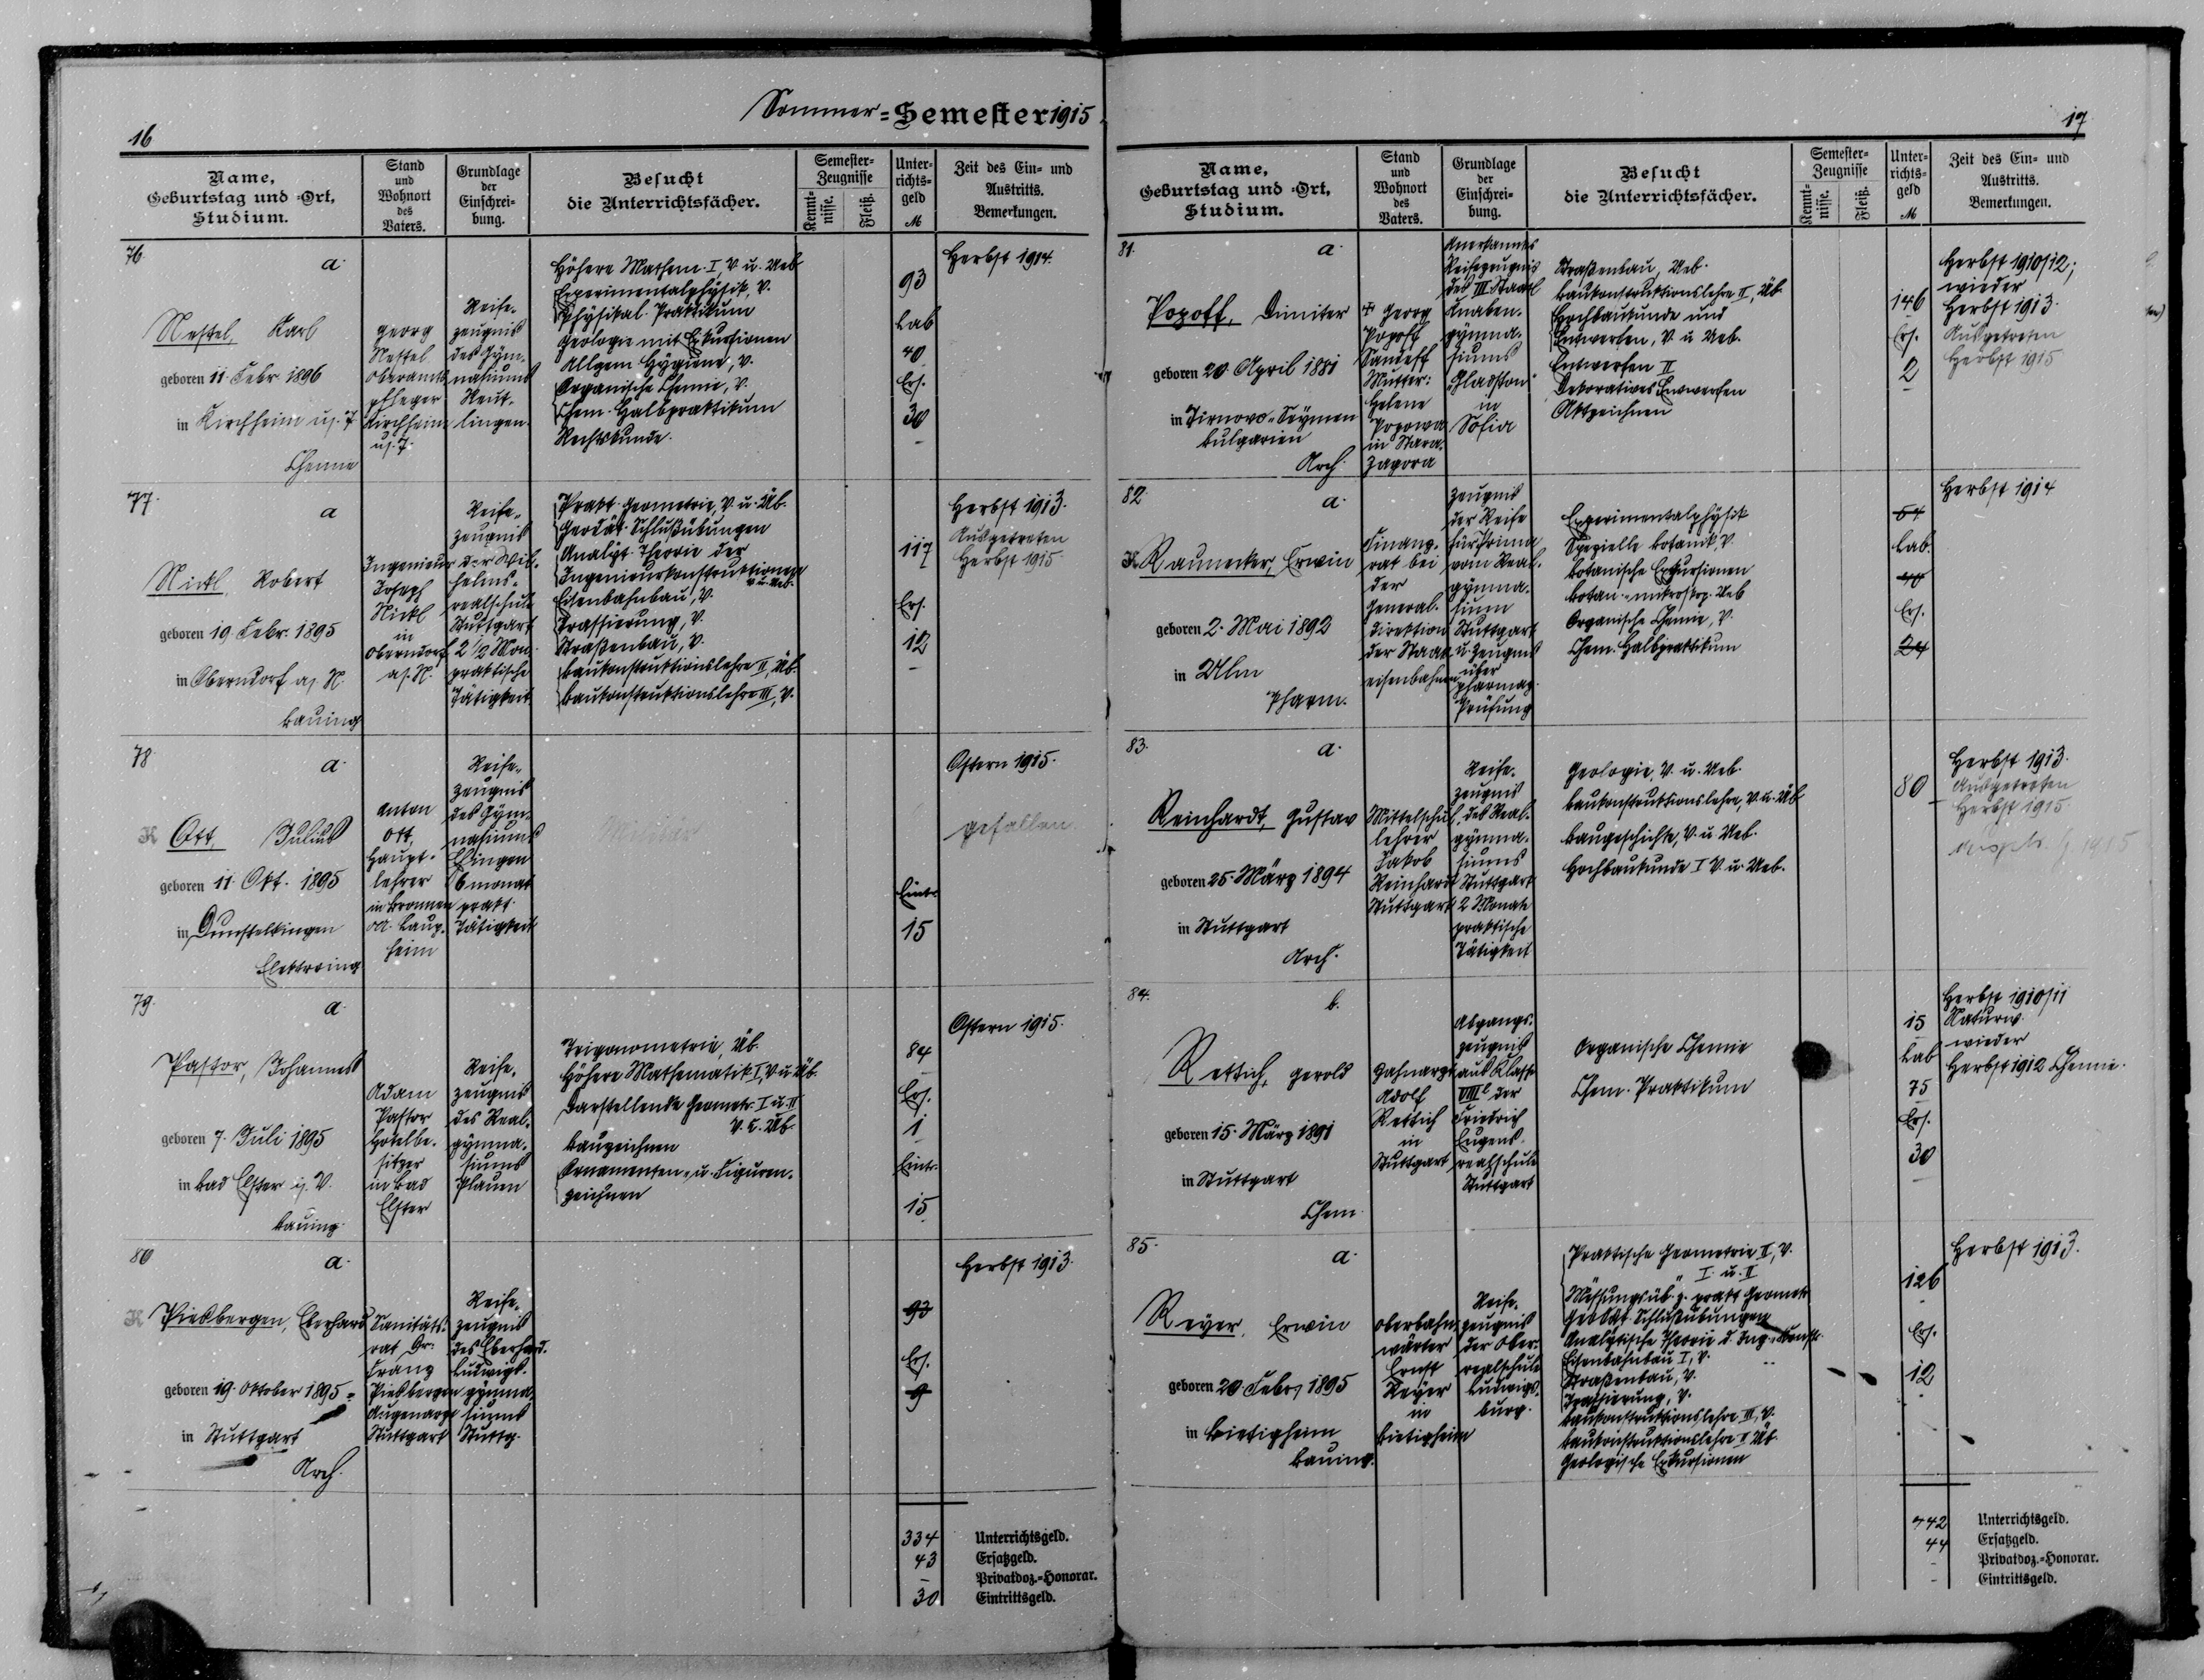 Sommer-Semester 1915
16
Name,
Geburtstag und -Ort,
Studium.
Stand
und
Wohnort
des
Vaters.
Grundlage
der
Einschrei-
bung.
Besucht
die Unterrichtsfächer.
Semester-
Zeugnisse
Kennt-
nisse.
Fleiß.
Unter-
richts-
geld
M
Zeit des Ein- und
Austritts.
Bemerkungen.
76.
a.
Nestel, Karl
geboren 11. Febr. 1896
in Kirchheim u/T.
Chemie
Georg
Nestel
Oberamts-
pfleger
Kirchheim
u/T.
Reife-
zeugnis
des Gym-
nasiums
Reut-
lingen.
Höhere Mathem. I, V. u. Ueb
Experimentalphysik, V.
Physikal. Praktikum
Geologie mit Exkursionen
Allgem Hygiene, V.
Organische Chemie, V.
Chem. Halbpraktikum
Rechtskunde.
93
Lab
40
Ers.
30
Herbst 1914.
77.
a
Nickl, Robert
geboren 19. Febr. 1895
in Oberndorf a/N.
Bauing
Ingenieur
Joseph
Nickl
in
Oberndorf
a/N.
Reife-
zeugnis
der Wil-
helms-
realschule
Stuttgart
2 1/2 Mon.
praktische
Tätigkeit
Prakt. Geometrie, V. u. Üb.
Geodät. Schlußübungen
Analyt. Theorie der
Ingenieurkonstruktionen
V. u. Ueb.
Eisenbahnbau, V.
Trassierung, V.
Straßenbau, V.
Baukonstruktionslehre II, Üb.
Baukonstruktionslehre III, V.
117
Ers.
12
Herbst 1913.
Ausgetreten
Herbst 1915
78.
a.
K Ott, Julius
geboren 11. Okt. 1895
in Dunstelkingen
Elektroing
Anton
Ott,
Haupt-
lehrer
in Bronnen
OA. Laup-
heim
Reife-
zeugnis
des Gym-
nasiums
Ehingen
6 Monat
prakt.
Tätigkeit
Militär
Eintr.
15
Ostern 1915.
gefallen.
79.
a.
Pastor, Johannes
geboren 7. Juli 1895
in Bad Elster i/V.
Bauing.
Adam
Pastor
Hotelbe-
sitzer
in Bad
Elster
Reife-
zeugnis
des Real-
gymna-
siums
Plauen
Trigonometrie, Üb.
Höhere Mathematik I, V. u. Üb.
Darstellende Geometr. I u. II
V. u. Üb.
Bauzeichnen
Ornamenten- u. Figuren-
zeichnen
84
Ers.
1
Eintr.
15
Ostern 1915.
80
a.
K Piesbergen, Eberhard
geboren 19. Oktober 1895
in Stuttgart
Arch.
Sanitäts-
rat Dr.
Franz
Piesbergen
Augenarzt
Stuttgart
Reife-
zeugnis
des Eberhard-
Ludwigs-
gymna-
siums
Stuttg.
93
Ers.
9
Herbst 1913.
334 Unterrichtsgeld.
43 Ersatzgeld.
- Privatdoz.-Honorar.
30 Eintrittsgeld.
17
Name,
Geburtstag und -Ort,
Studium.
Stand
und
Wohnort
des
Vaters.
Grundlage
der
Einschrei-
bung.
Besucht
die Unterrichtsfächer.
Semester-
Zeugnisse
Kennt-
nisse.
Fleiß.
Unter-
richts-
geld
M
Zeit des Ein- und
Austritts.
Bemerkungen.
81.
a.
Popoff, Dimiter
geboren 20. April 1881
in Tirnowo-Seymen
Bulgarien
Arch.
† Georg
Popoff
Sandeff
Mutter:
Helene
Popowa
in Stara-
Zagora
Anerkanntes
Reifezeugnis
des III. Staatl
Knaben-
gymna-
siums
„Gladston“
in
Sofia
Straßenbau, Ueb.
Baukonstruktionslehre II, Üb.
Hochbaukunde und
Entwerfen, V. u. Ueb.
Entwerfen II
Dekoratives Entwerfen
Aktzeichnen
146
Ers.
2
Herbst 1910/12;
wieder
Herbst 1913.
Ausgetreten
Herbst 1915
82.
a.
K Raunecker, Erwin
geboren 2. Mai 1892
in Ulm
Pharm.
Finanz-
rat bei
der
General-
direktion
der Staats-
eisenbahnen
Zeugnis
der Reife
für Prima
vom Real-
gymna-
sium
Stuttgart
u. Zeugnis
über
pharmaz.
Prüfung
Experimentalphysik
Spezielle Botanik, V.
Botanische Exkursionen
Botan.-mikroskop. Ueb
Organische Chemie, V.
Chem. Halbpraktikum
64
Lab.
40
Ers.
24
Herbst 1914
83.
a.
Reinhardt, Gustav
geboren 25. März 1894
in Stuttgart
Arch.
Mittelschul-
lehrer
Jakob
Reinhardt
Stuttgart
Reife-
zeugnis
des Real-
gymna-
siums
Stuttgart
2 Monate
praktische
Tätigkeit
Geologie, V. u. Ueb.
Baukonstruktionslehre, V. u. Üb
Baugeschichte, V. u. Ueb.
Hochbaukunde I V. u. Ueb.
80
Herbst 1913.
Ausgetreten
Herbst 1915
84.
b.
Rettich, Gerold
geboren 15. März 1891
in Stuttgart
Chem.
Zahnarzt
Adolf
Rettich
in
Stuttgart
Abgangs-
zeugnis
aus Klasse
VIII b der
Friedrich
Eugens-
realschule
Stuttgart
Organische Chemie
Chem. Praktikum
15
Lab
75
Ers.
30
Herbst 1910/11
Naturw.
wieder
Herbst 1912 Chemie.
85.
a.
Reyer, Erwin
geboren 20. Febr. 1895
in Bietigheim
Bauing.
Oberbahn-
wärter
Ernst
Reyer
in
Bietigheim
Reife-
zeugnis
der Ober-
realschule
Ludwigs-
burg.
Praktische Geometrie II, V.
" I u. II
Messungsüb. z. prakt Geometr
Geodät Schlußübungen
Analytische Theorie d. Ing.-Konstr.
Eisenbahnbau I, V.
Straßenbau, V.
Trassierung, V.
Baukonstruktionslehre III, V.
Baukonstruktionslehre II Üb.
Geologische Exkursionen
126
Ers.
12
Herbst 1913.
442 Unterrichtsgeld.
44 Ersatzgeld.
- Privatdoz.-Honorar.
- Eintrittsgeld.